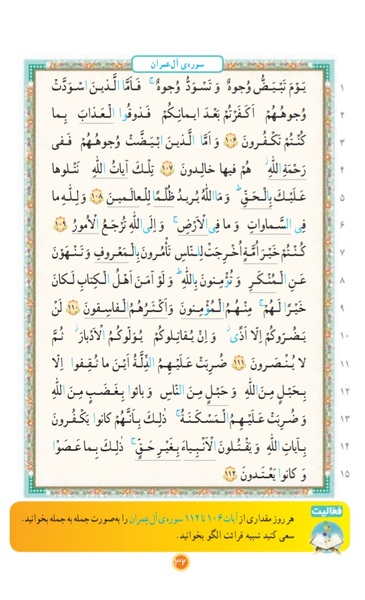 سوره‌ی آل عمران
یَوْمَ تَبْیَضُّ وُجوهٌ وَ تَسْوَدُّ وُجوهٌ ۚ فَاَمَّا الَّذینَ اسْوَدَّتْ ۱
وُجوهُهُمْ اَکَفَرْتُمْ بَعْدَ ایمانِکُمْ فَذوقُوا الْعَذابَ بِما ۲
کُنْتُمْ تَکْفُرونَ ۱۰۶ وَ اَمَّا الَّذینَ ابْیَضَّتْ وُجوهُهُمْ فَفی ۳
رَحْمَةِ اللّٰهِ ۖ هُمْ فیها خالِدونَ ۱۰۷ تِلْکَ آیاتُ اللّٰهِ نَتْلوها ۴
عَلَیْکَ بِالْحَقِّ ۗ وَ مَا اللّٰهُ یُریدُ ظُلْمًا لِلْعالَمینَ ۱۰۸ وَ لِلّٰهِ ما ۵
فِی السَّماواتِ وَ ما فِی الْاَرْضِ ۚ وَ اِلَی اللّٰهِ تُرْجَعُ الْاُمورُ ۱۰۹ ۶
کُنْتُمْ خَیْرَ اُمَّةٍ اُخْرِجَتْ لِلنّاسِ تَأْمُرونَ بِالْمَعْروفِ وَ تَنْهَوْنَ ۷
عَنِ الْمُنْکَرِ وَ تُؤْمِنونَ بِاللّٰهِ ۗ وَ لَوْ آمَنَ اَهْلُ الْکِتابِ لَکانَ ۸
خَیْرًا لَهُمْ ۚ مِنْهُمُ الْمُؤْمِنونَ وَ اَکْثَرُهُمُ الْفاسِقونَ ۱۱۰ لَنْ ۹
یَضُرّوکُمْ اِلّا اَذًی ۖ وَ اِنْ یُقاتِلوکُمْ یُوَلّوکُمُ الْاَدْبارَ ۖ ثُمَّ ۱۰
لا یُنْصَرونَ ۱۱۱ ضُرِبَتْ عَلَیْهِمُ الذِّلَّةُ اَیْنَ ما ثُقِفوا اِلّا ۱۱
بِحَبْلٍ مِنَ اللّٰهِ وَ حَبْلٍ مِنَ النّاسِ وَ بائو بِغَضَبٍ مِنَ اللّٰهِ ۱۲
وَ ضُرِبَتْ عَلَیْهِمُ الْمَسْکَنَةُ ۚ ذٰلِکَ بِاَنَّهُمْ کانوا یَکْفُرونَ ۱۳
بِآیاتِ اللّٰهِ وَ یَقْتُلونَ الْاَنْبِیاءَ بِغَیْرِ حَقٍّ ۚ ذٰلِکَ بِما عَصَوْا ۱۴
وَ کانوا یَعْتَدونَ ۱۱۲ ۱۵
فعالیت
هر روز مقداری از آیات ۱۰۶ تا ۱۱۲ سوره‌ی آل عمران را به‌صورت جمله به جمله بخوانید.
سعی کنید شبیه قرائت الگو بخوانید.
۳۴